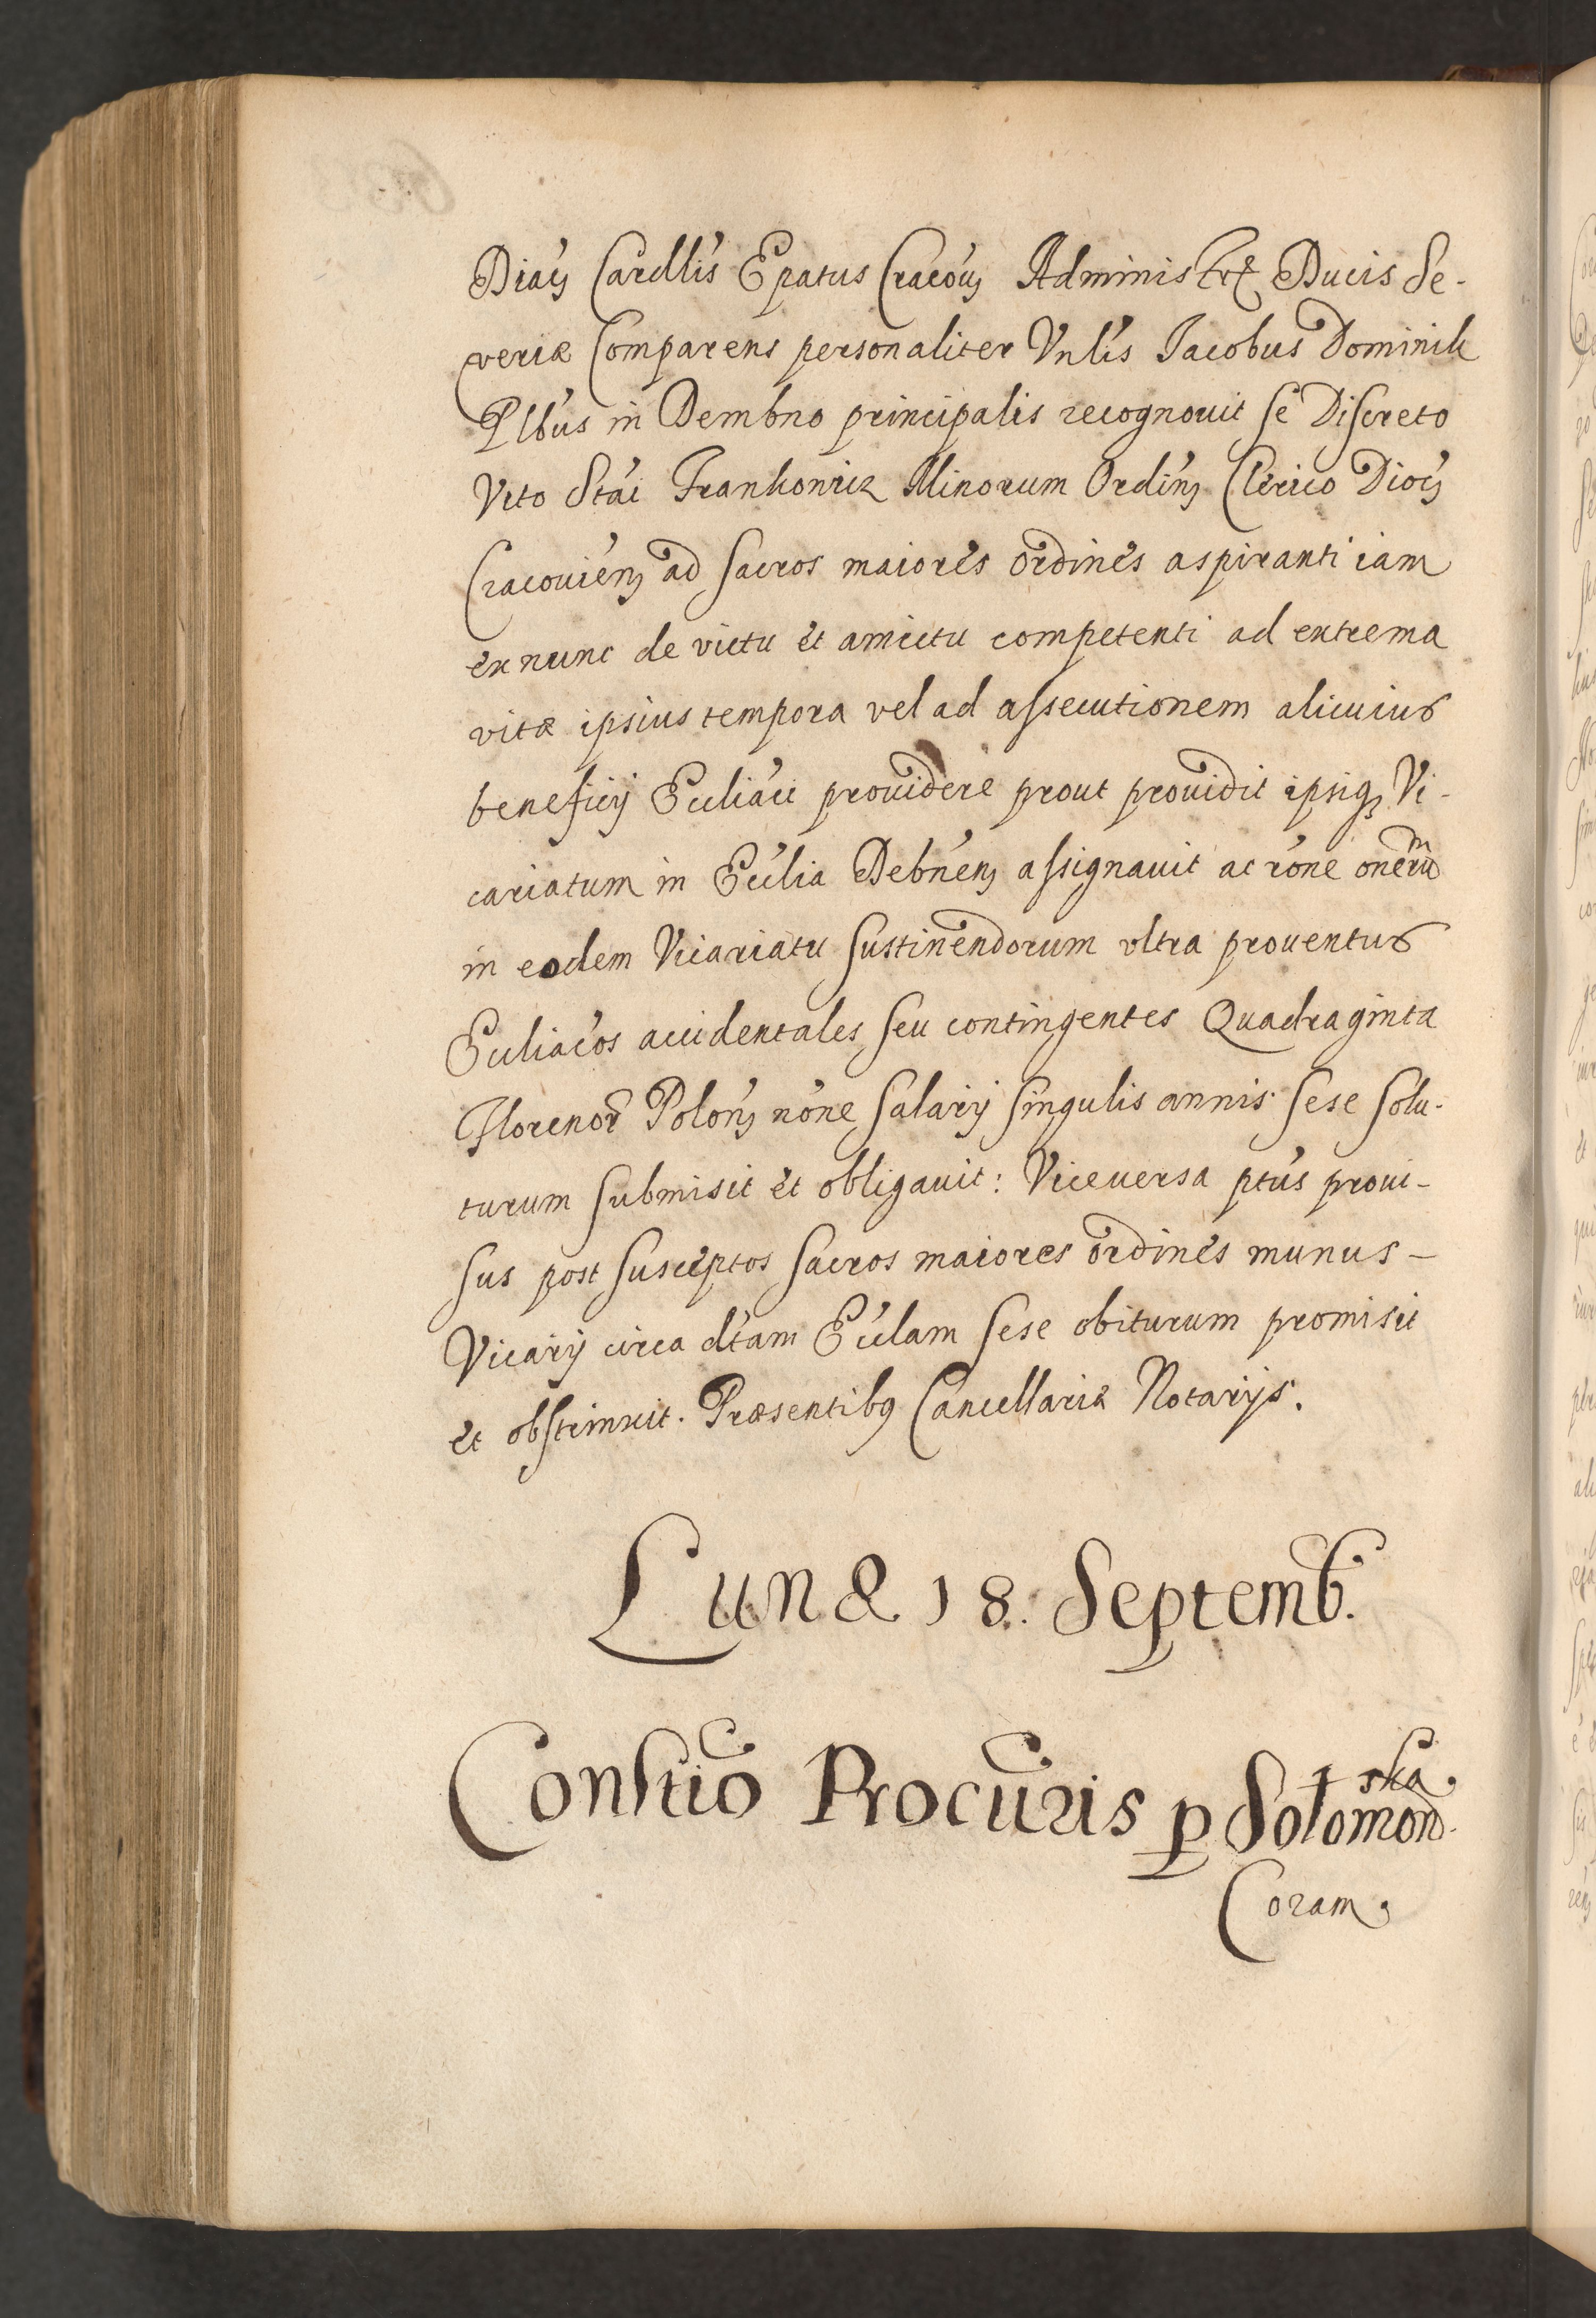 Diacꝫ Cardlis Epatus Cracouꝫ Administrꝭ Ducis Se-
veriæ Comparens personaliter Vnlis Jacobus Dominik
Plbus in Dembno principalis recognouit se Discreto
Vito Stai Frankowicz Minorum Ordinꝫ Clerico Diocꝫ
Cracouienꝫ ad sacros maiores ordines aspiranti iam
ex nunc de victu et amictu competenti ad extrema
vitæ ipsius tempora vel ad assecutionem alicuius
beneficij Eccliaci prouidere prout prouidit ipsiqꝫ Vi-
cariatum in Ecclia Debnenꝫ assignauit ac rone onerum
in eodem Vicariatu sustinendorum vltra prouentus
Eccliacos accidentales seu contingentes Quadraginta
Florenor Polonꝫ none salarij singulis annis sese solu-
turum submisit et obligauit: Viceuersa ptus proui-
sus post susceptos sacros maiores ordines munus -
Vicarij circa dtam Ecclam sese obiturum promisit
et obstrinxit. Præsentibꝫ Cancellariæ Notarijs.
Lunæ 18. Septemb.
Constio Procuris p Sołomonska.
Coram